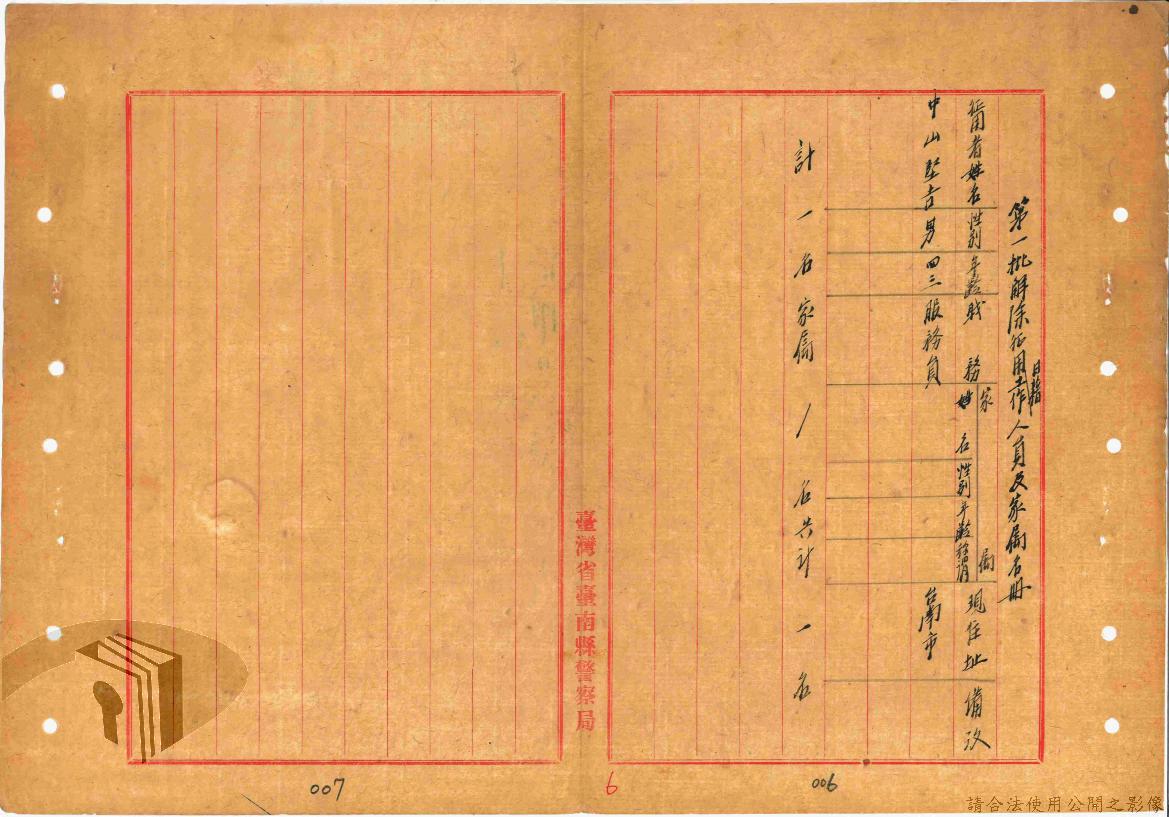 第一批解除征用日籍工作人員及家屬名冊
征用者姓名 性別 年齡 職務 家屬 姓名 性別 年齡 稱謂 現住址 備攷
中山堅吉 男 四三 服務員 台南市
計一名家屬/名共計一名
臺灣省臺南縣警察局
006
6
007
請合法使用公開之影像